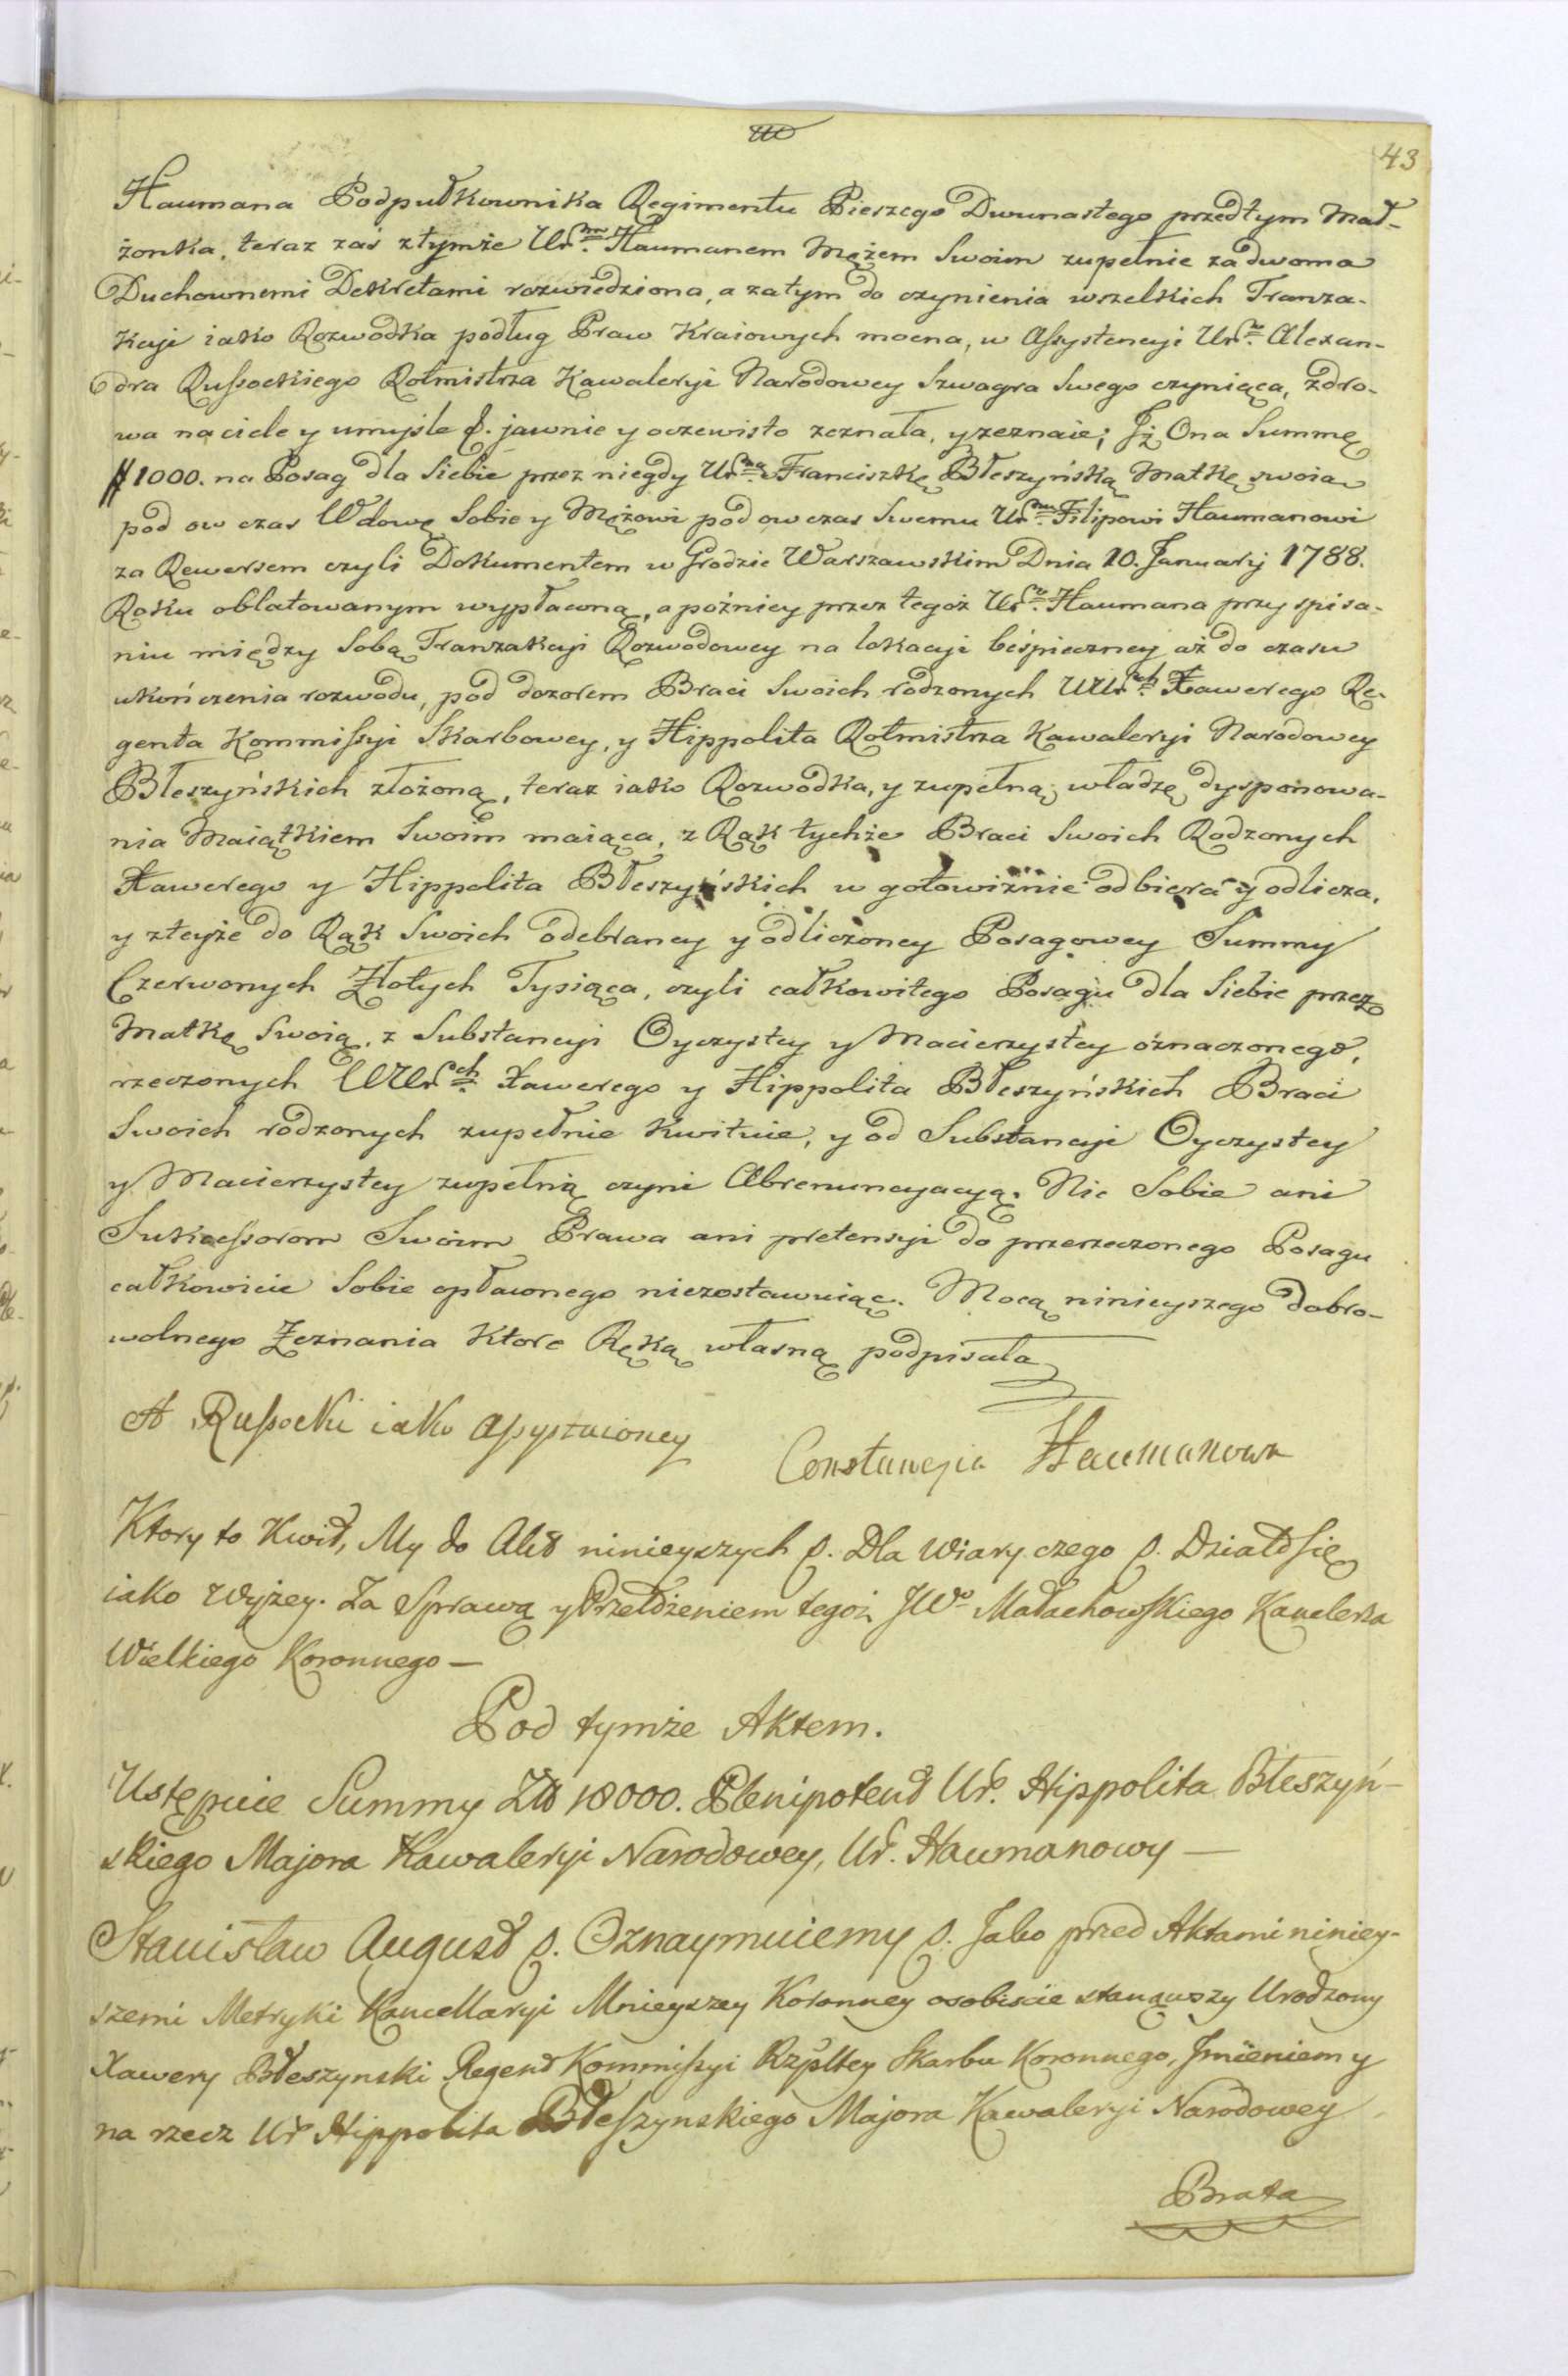 43
Haumana Podpułkownika Regimentu Pieszego Dwunastego przedtym Mał-
żonka, teraz zaś z tymże Ur<sup>m</sup>. Haumanem Mężem Swoim zupełnie za dwoma
Duchownemi Dekretami rozwiedziona, a zatym do czynienia wszelkich Tranza-
kcyi iako Rozwodka podług Praw Kraiowych mocna, w Assystencyi Ur<sup>o</sup>. Alexan-
dra Russockiego Rotmistrza Kawaleryi Narodowey Szwagra Swego czyniąca, zdro-
wa na ciele y umyśle p. jawnie y oczewisto zeznała, y zeznaie; Jż Ona Summę
# 1000. na Posag dla Siebie przez niegdy Ur<sup>ną</sup>. Franciszkę Błeszyńską Matkę swoią
pod ow czas Wdowę Sobie y Mężowi pod ow czas Swemu Ur<sup>mu</sup>. Filipowi Haumanowi
za Rewersem czyli Dokumentem w Grodzie Warszawskim Dnia 10. Januarij 1788.
Roku oblatowanym wypłaconą, a pózniey przez tegoż Ur<sup>o</sup>. Haumana przy spisa-
niu między Sobą Tranzakcyi Rozwodowey na lokacyi beśpieczney aż do czasu
ukończenia rozwodu, pod dozorem Braci Swoich rodzonych UUr<sup>ch</sup>. Xawerego Re-
genta Kommissyi Skarbowey, y Hippolita Rotmistrza Kawaleryi Narodowey
Błeszyńskich złożoną, teraz iako Rozwodka, y zupełną władzę dysponowa-
nia Maiątkiem Swoim maiąca, z Rąk tychże Braci Swoich Rodzonych
Xawerego y Hippolita Błeszyńskich w gotowiźnie odbiera y odlicza,
y z teyże do Rąk Swoich odebraney y odliczoney Posagowey Summy
Czerwonych Złotych Tysiąca, czyli całkowitego Posagu dla Siebie przez
Matkę Swoią, z Substancyi Oyczystey y Macierzystey oznaczonego,
rzeczonych UUr<sup>ch</sup>. Xawerego y Hippolita Błeszyńskich Braci
Swoich rodzonych zupełnie kwituie, y od Substancyi Oyczystey
y Macierzystey zupełną czyni Abrenuncyacyą. Nic Sobie ani
Sukcessorom Swoim Prawa ani pretensyi do przerzeczonego Posagu
całkowicie Sobie opłaconego niezostawuiąc. Mocą ninieyszego dobro-
wolnego Zeznania ktore Ręką własną podpisała
A Russocki iako Assystuioncy
Constancyia Haumanowa
Ktory to Kwit, My do Akt ninieyszych p. Dla Wiary czego p. Działo Się
iako wyżey. Za Sprawą y Przełożeniem tegoż JW<sup>o</sup> Małachowskiego Kanclerza
Wielkiego Koronnego —
Pod tymże Aktem.
Ustępuie Summy Złł 18000. Plenipotent Ur<sup>o</sup>. Hippolita Błeszyń-
skiego Majora Kawaleryi Narodowey, Ur. Haumanowy —
Stanisław August p. Oznaymuiemy p. Jako przed Aktami niniey-
szemi Metryki Kancellaryi Mnieyszey Koronney osobiscie stanąwszy Urodzony
Xawery Błeszynski Regent Kommissyi Rzpltey Skarbu Koronnego, Jmieniem y
na rzecz Ur<sup>o</sup> Hippolita Błeszynskiego Majora Kawaleryi Narodowey
Brata